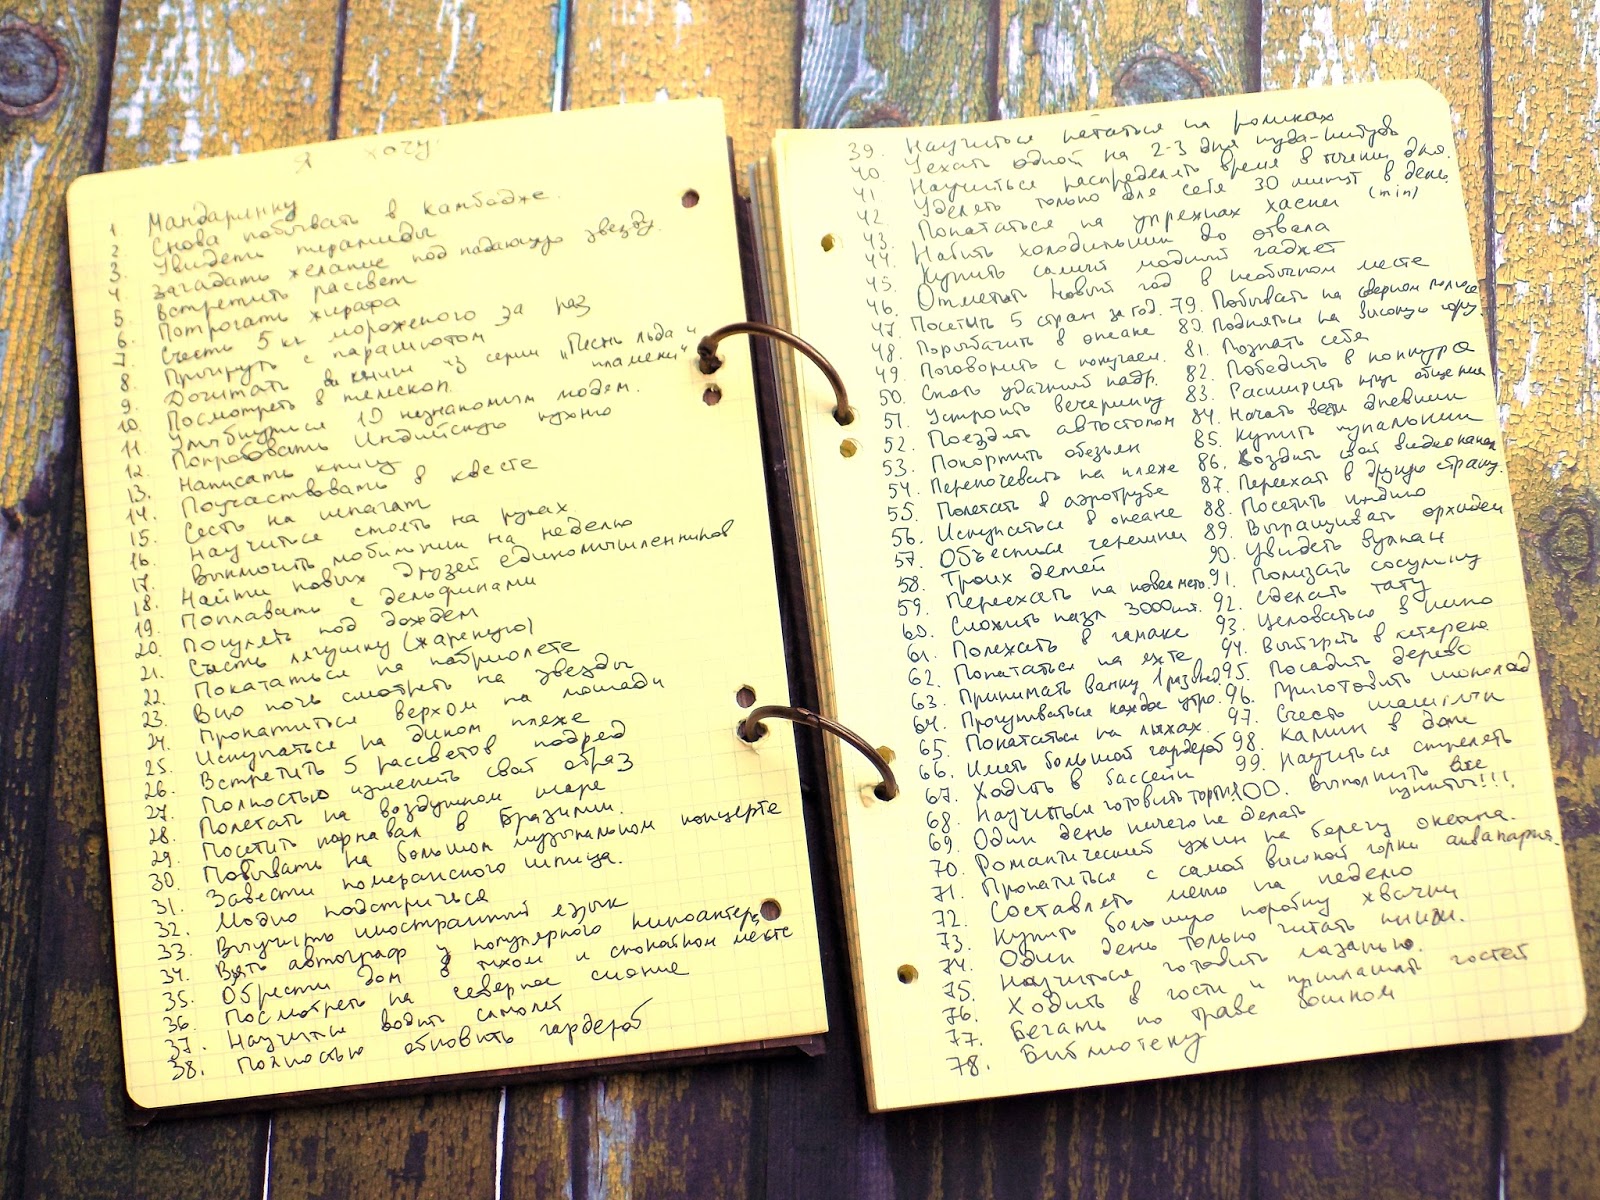 Я хочу:
1. Мандаринку
2. Снова побывать в Камбодже.
3. Увидеть пирамиды
4. Загадать желание под падающую звезду.
5. Встретить рассвет
6. Потрогать жирафа
7. Съесть 5 кг мороженого за раз
8. Прыгнуть с парашютом
9. Дочитать книги из серии „Песнь льда и пламени"
10. Посмотреть в телескоп
11. Улыбнуться 10 незнакомым людям.
12. Попробовать Индийскую кухню
13. Написать книгу
14. Поучаствовать в квесте
15. Сесть на шпагат
16. Научиться стоять на руках.
17. Выключить мобильник на неделю
18. Найти новых друзей единомышленников
19. Поплавать с дельфинами
20. Погулять под дождем
21. Съесть лягушку (жареную)
22. Покататься на кабриолете
23. Всю ночь смотреть на звезды
24. Прокатиться верхом на лошади
25. Искупаться на диком пляже
26. Встретить 5 рассветов подряд
27. Полностью изменить свой образ
28. Полетать на воздушном шаре
29. Посетить карнавал в Бразилии.
30. Побывать на большом музыкальном концерте
31. Завести померанского шпица.
32. Модно подстричься
33. Выучить иностранный язык
34. Взять автограф у популярного киноактера
35. Обрести дом в тихом и спокойном месте
36. Посмотреть на северное сияние
37. Научиться водить самолет
38. Полностью обновить гардероб
39. Научиться кататься на роликах
40. Уехать одной на 2-3 дня куда-нибудь
41. Научиться распределять время в течении дня.
42. Уделять только для себя 30 минут в день (min)
43. Покататься на упряжках хаски
44. Набить холодильник до отвала
45. Купить самый модный гаджет
46. Отметить Новый год в необычном месте
47. Посетить 5 стран за год. 79. Побывать на северном полюсе
48. Порыбачить в океане 80. Подняться на высокую гору
49. Поговорить с попугаем. 81. Познать себя
50. Снять удачный кадр. 82. Победить в конкурсе
51. Устроить вечеринку 83. Расширить круг общения
52. Поездить автостопом 84. Начать вести дневник
53. Покормить обезьян 85. Купить купальник
54. Переночевать на пляже 86. Создать свой видеоканал
55. Полетать в аэротрубе 87. Переехать в другую страну.
56. Искупаться в океане 88. Посетить Индию
57. Объесться черешни 89. Выращивать орхидеи
58. Троих детей 90. Увидеть вулкан
59. Переехать на новое место. 91. Полизать сосульку
60. Сложить пазл 3000шт. 92. Сделать тату
61. Полежать в гамаке 93. Целоваться в кино
62. Покататься на яхте 94. Выиграть в лотерею
63. Принимать ванну 1 раз в нед. 95. Посадить дерево
64. Прогуливаться каждое утро. 96. Приготовить шоколад
65. Покататься на лыжах. 97. Съесть шашлыки
66. Иметь большой гардероб 98. Камин в доме
67. Ходить в бассейн 99. Научиться стрелять
68. Научиться готовить торты 100. Выполнить все пункты!!!
69. Один день ничего не делать
70. Романтический ужин на берегу океана.
71. Прокатиться с самой высокой горки аквапарка.
72. Составлять меню на неделю
73. Купить большую коробку жвачки
74. Один день только читать книги.
75. Научиться готовить лазанью.
76. Ходить в гости и приглашать гостей
77. Бегать по траве босиком
78. Библиотеку